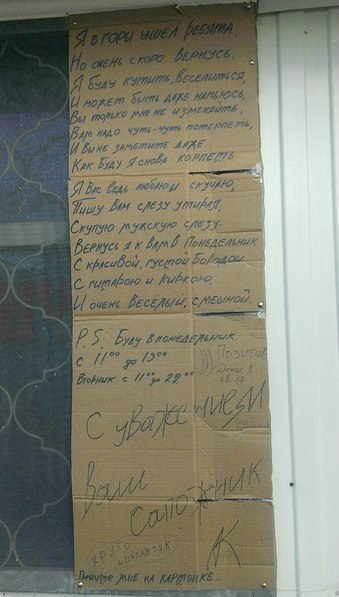 Я в горы ушел ребята,
Но очень скоро вернусь,
Я буду кутить, веселиться,
И может быть даже напьюсь,
Вы только мне не изменяйте,
Вам надо чуть-чуть потерпеть,
И вы не заметите даже
Как буду я снова корпеть
Я вас ведь люблю и скучаю,
Пишу вам слезу утирая,
Скупую мужскую слезу.
Вернусь я к вам в понедельник
С красивой, густой бородой
С гитарою и киркою
И очень веселый, смешной.
P.S: Буду в понедельник
с 11⁰⁰ до 19⁰⁰
Вторник с 11⁰⁰ до 22⁰⁰
))) Позитив
кв 17
С уважением
Ваш
сапожник
круто
красавчик
Пишите мне на картонке